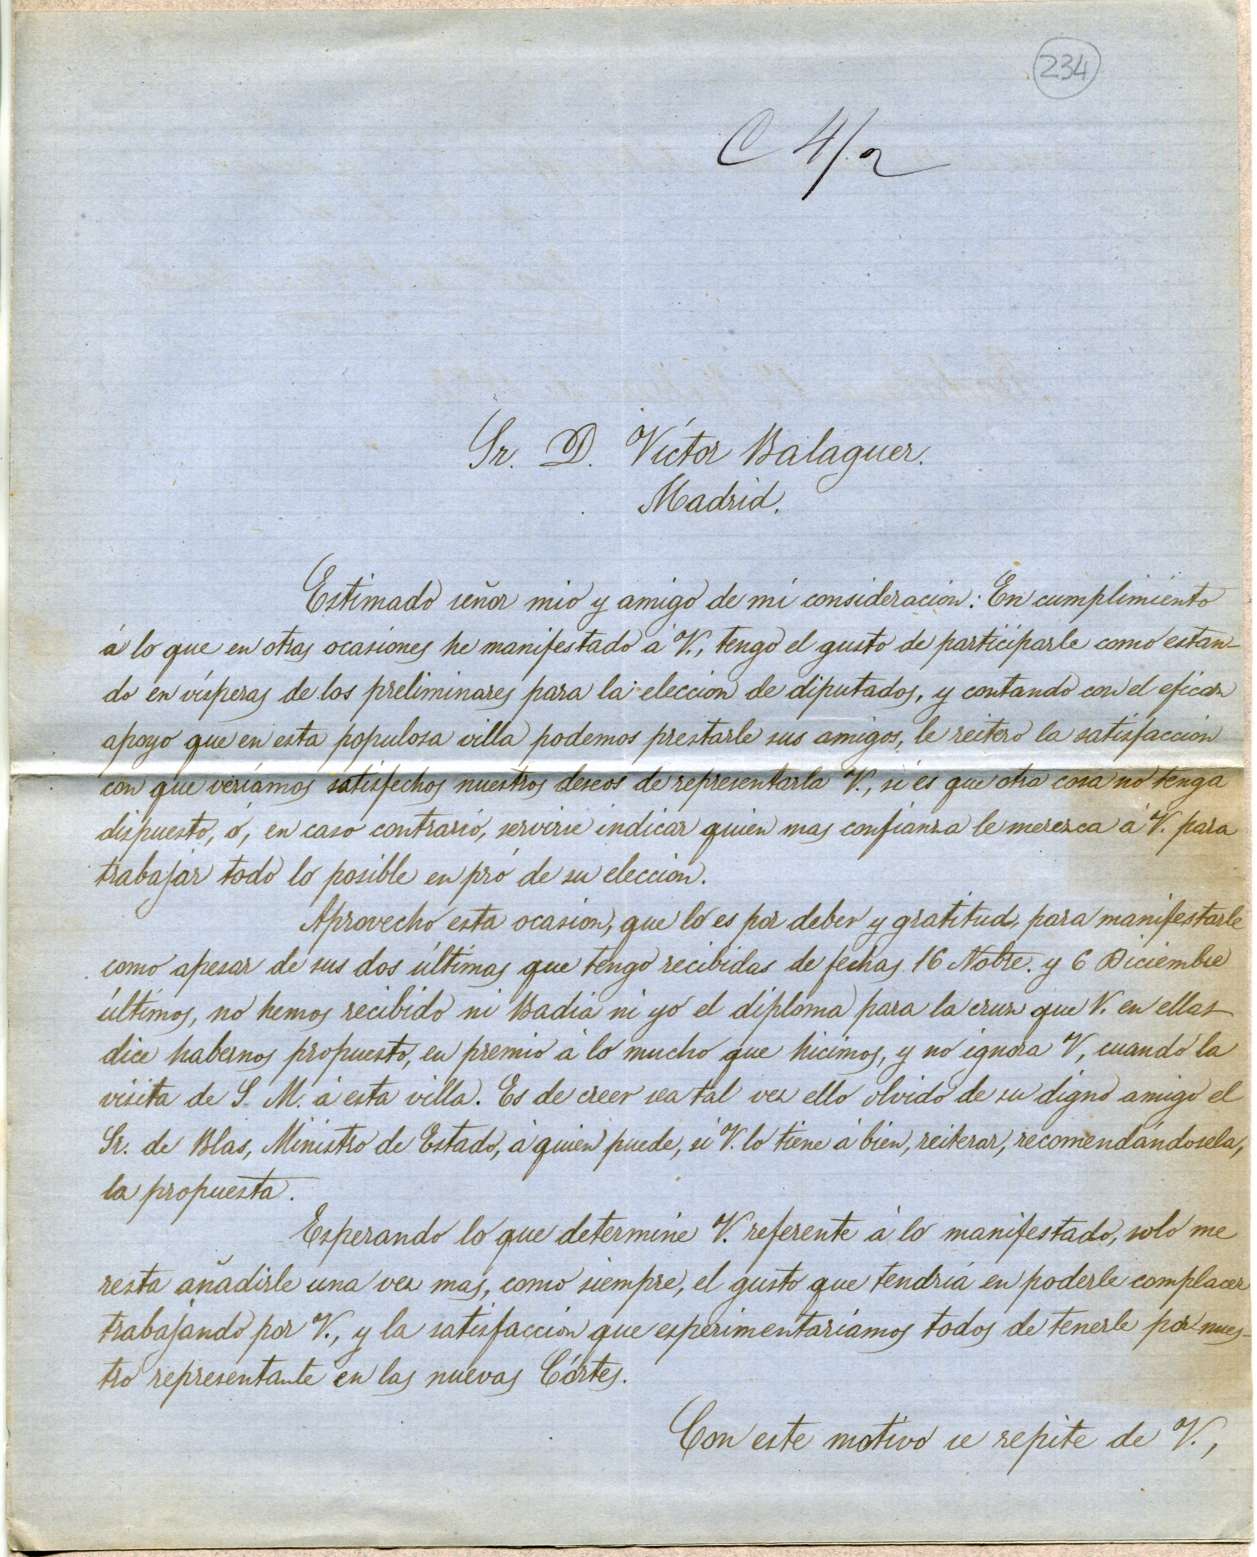 234
C 4/2
Sr. D. Víctor Balaguer.
Madrid.
Estimado señor mio y amigo de mi consideracion: En cumplimiento
á lo que en otras ocasiones he manifestado á V., tengo el gusto de participarle como estan-
do en vísperas de los preliminares para la eleccion de diputados, y contando con el eficaz
apoyo que en esta populosa villa podemos prestarle sus amigos, le reitero la satisfaccion
con que veríamos satisfechos nuestros deseos de representarla V., si es que otra cosa no tenga
dispuesto, ó, en caso contrario, servirse indicar quien mas confianza le merezca á V. para
trabajar todo lo posible en pró de su eleccion.
Aprovecho esta ocasion, que lo es por deber y gratitud, para manifestarle
como apesar de sus dos últimas que tengo recibidas de fechas 16 Nobre. y 6 Diciembre
últimos, no hemos recibido ni Badia ni yo el diploma para la cruz que V. en ellas
dice habernos propuesto, en premio á lo mucho que hicimos, y no ignora V, cuando la
visita de S. M. á esta villa. Es de creer sea tal vez ello olvido de su digno amigo el
Sr. de Blas, Ministro de Estado, á quien puede, si V. lo tiene á bien, reiterar, recomendándosela,
la propuesta.
Esperando lo que determine V. referente á lo manifestado, solo me
resta añadirle una vez mas, como siempre, el gusto que tendria en poderle complacer
trabajando por V., y la satisfaccion que esperimentaríamos todos de tenerle por nues-
tro representante en las nuevas Córtes.
Con este motivo se repite de V.,